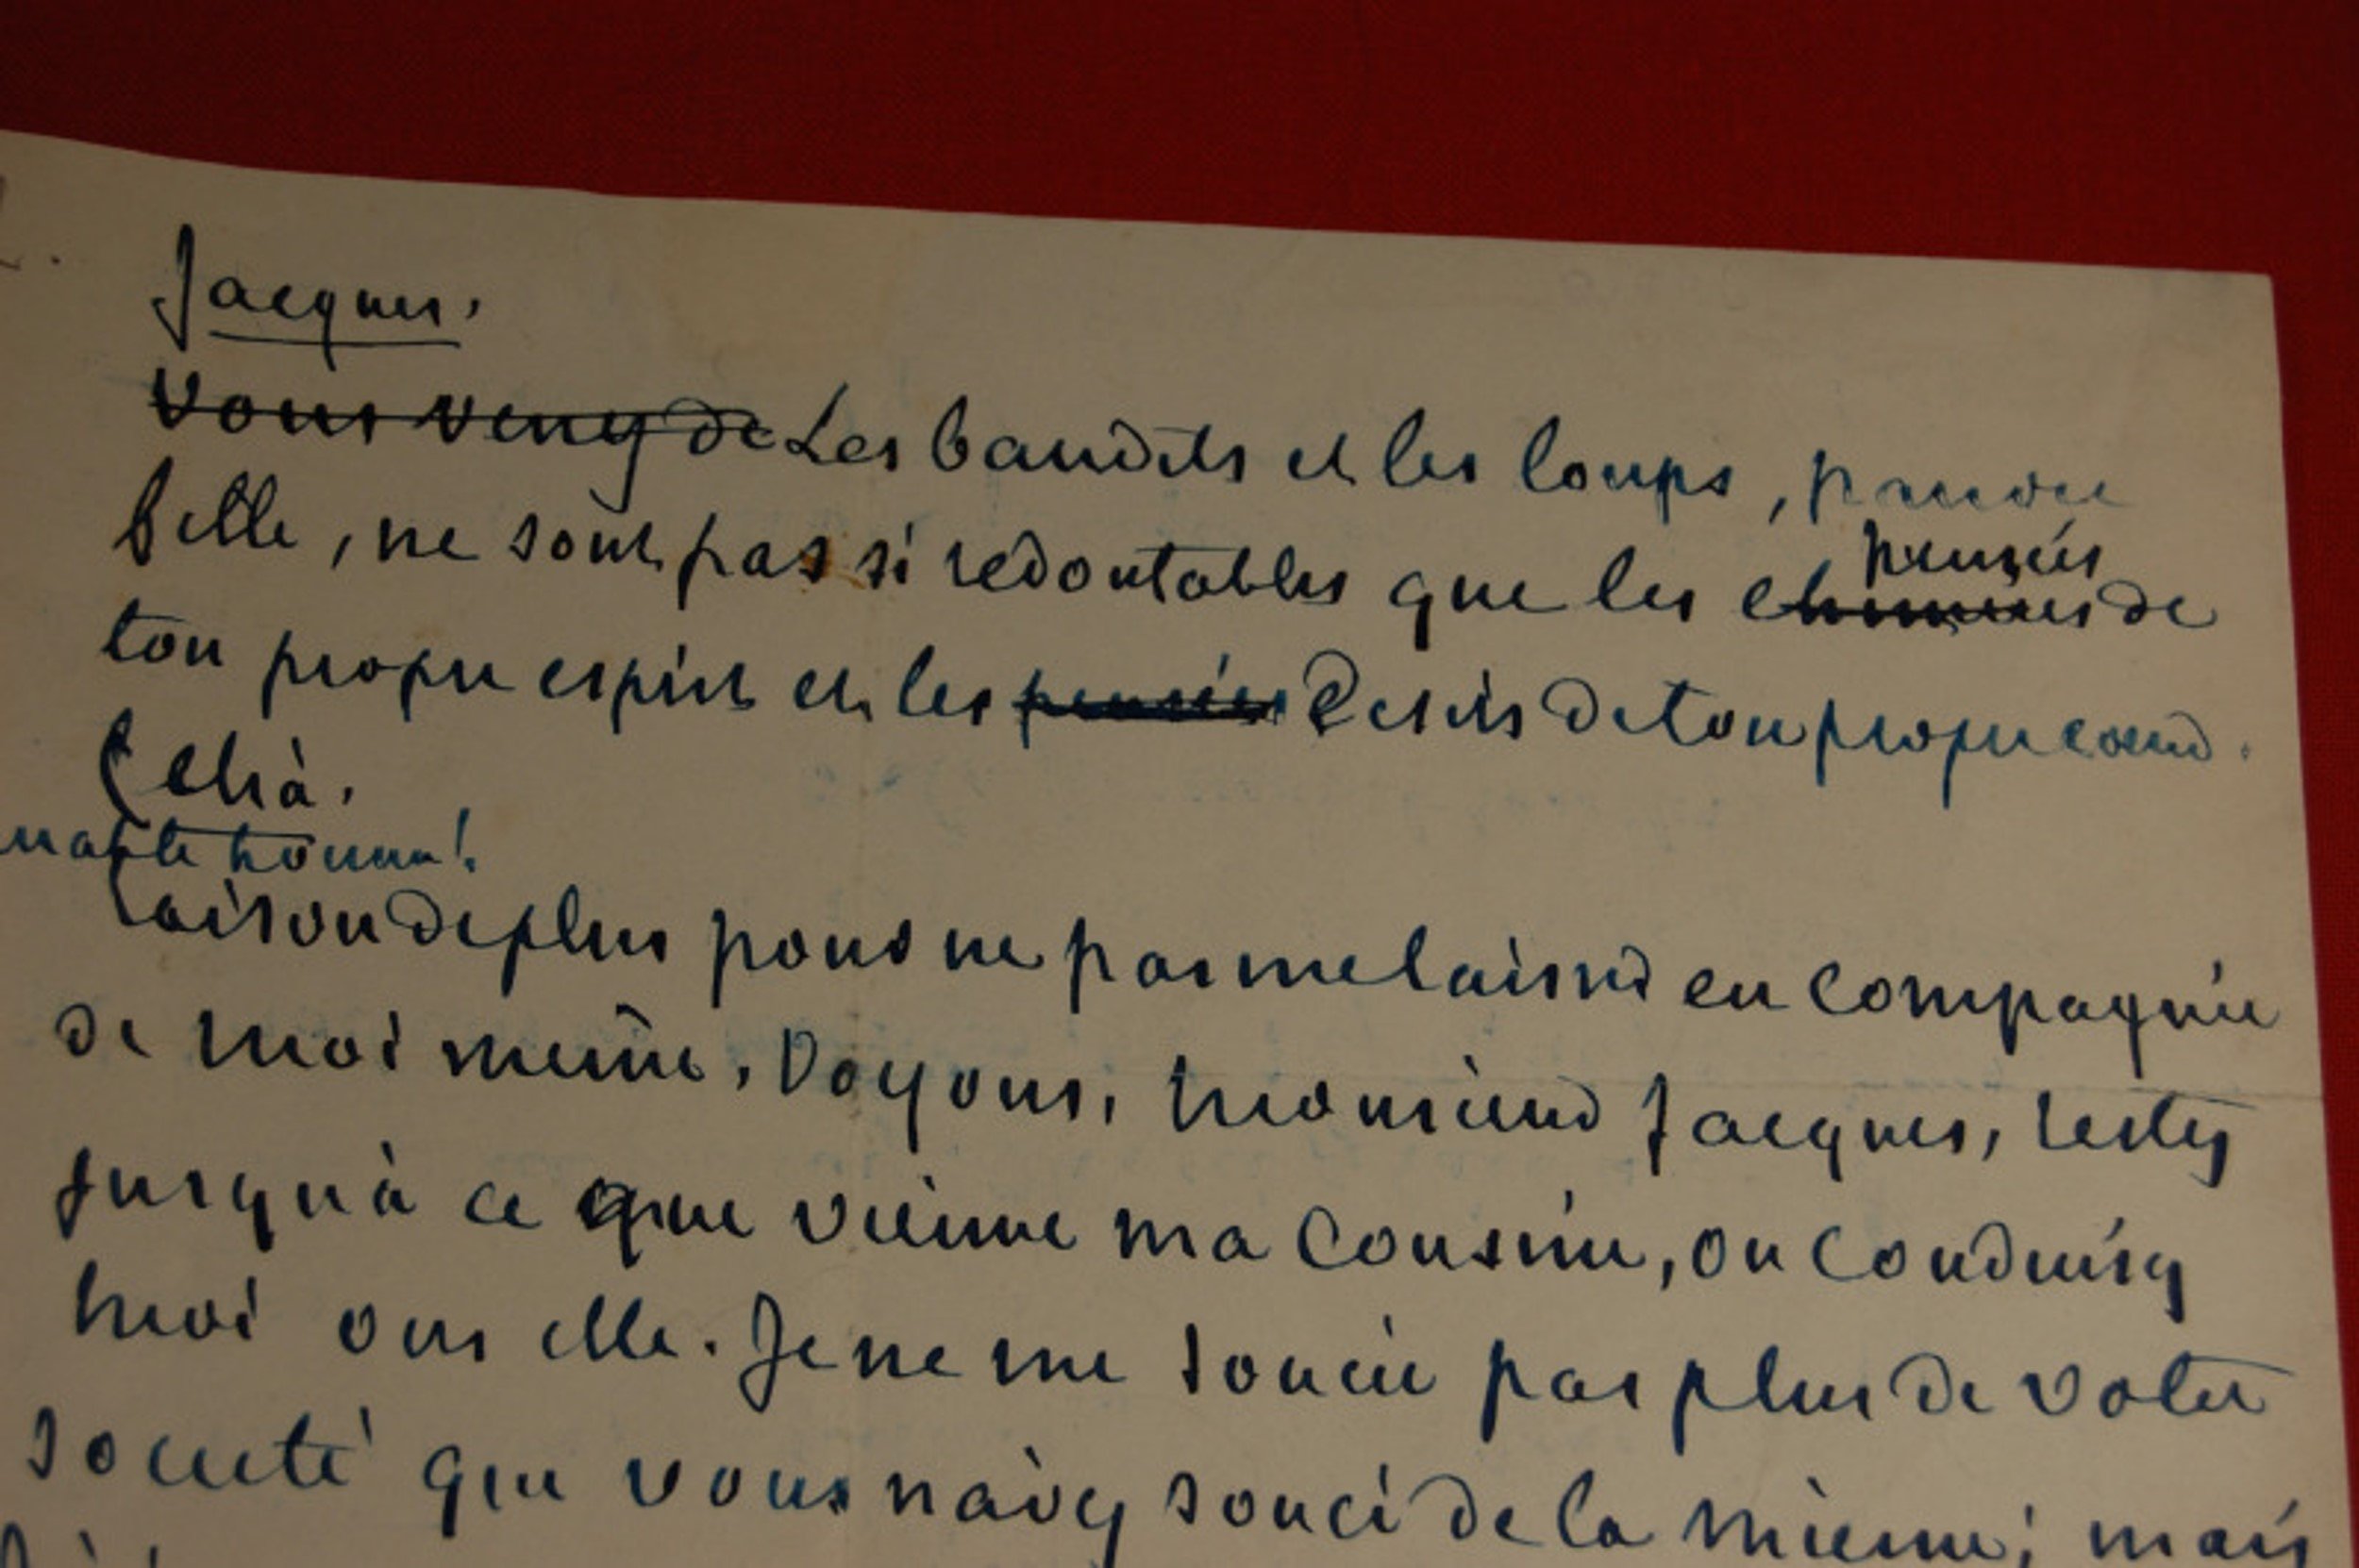 Jacques.
Vous venez de Les bandits et les loups, pauvre
pensées
belle, ne sont pas si redoutables que les chimères de
ton propre esprit et les pensées désirs de ton propre cœur.
Célia.
honneur!
Raison de plus pour ne pas me laisser en compagnie
de moi même. Voyons, monsieur Jacques, restez
jusqu'à ce que vienne ma cousine, ou conduisez
moi vers elle. Je ne me soucie pas plus de votre
société que vous n'avez souci de la mienne; mais